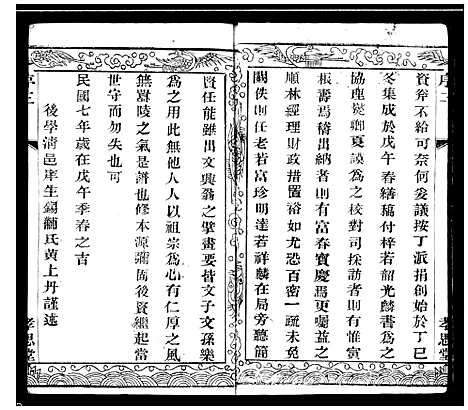 序二
資斧不給可奈何爰議按丁派捐創始於丁巳
冬集成於戊午春繕稿付梓若韶光麟書為之
協塵燮卿夏謨為之校對司採訪者則有富
根壽爲稽出納者則有富春寶慶爲更囑益之
順林經理財政措置裕如尤恐百密一疏未免
闕佚則任老若富珍明達若祥麟在局旁聽節
賢任能踨出文興翁之擘畫要皆文子文孫樂
為之用此無他人人以祖宗為心有仁厚之風
無囂陵之氣是譜也修本源彌固後資繼起當
世守而勿失也可
民國七年歲在戊午季春之吉
後學清邑庠生錫黼氏黃上丹謹述
孝思堂
孝思堂